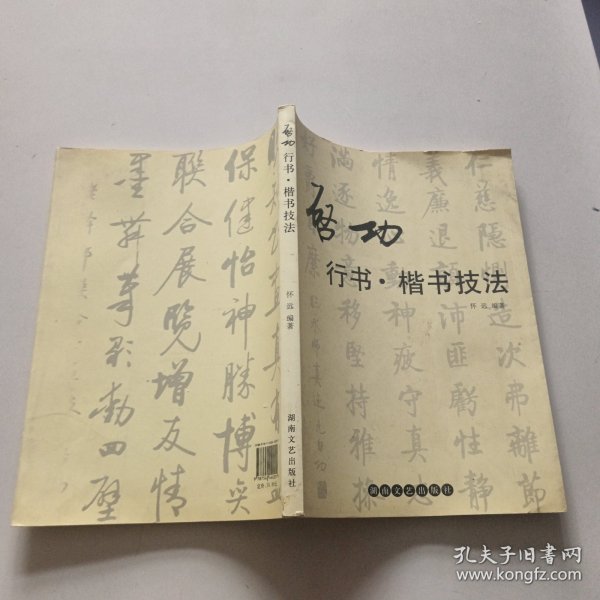 启功
行书·楷书技法
怀远 编著
湖南文艺出版社
启功
行书·楷书技法
怀远 编著
湖南文艺出版社
仁慈隱惻造次弗離節
義廉退顛沛匪虧性靜
情逸心動神疲守真志
滿逐物意移堅持雅操
保健怡神勝博奕
聯合展覽增友情
墨舞筆歌動四壁
孔夫子旧书网
www.kongfz.com